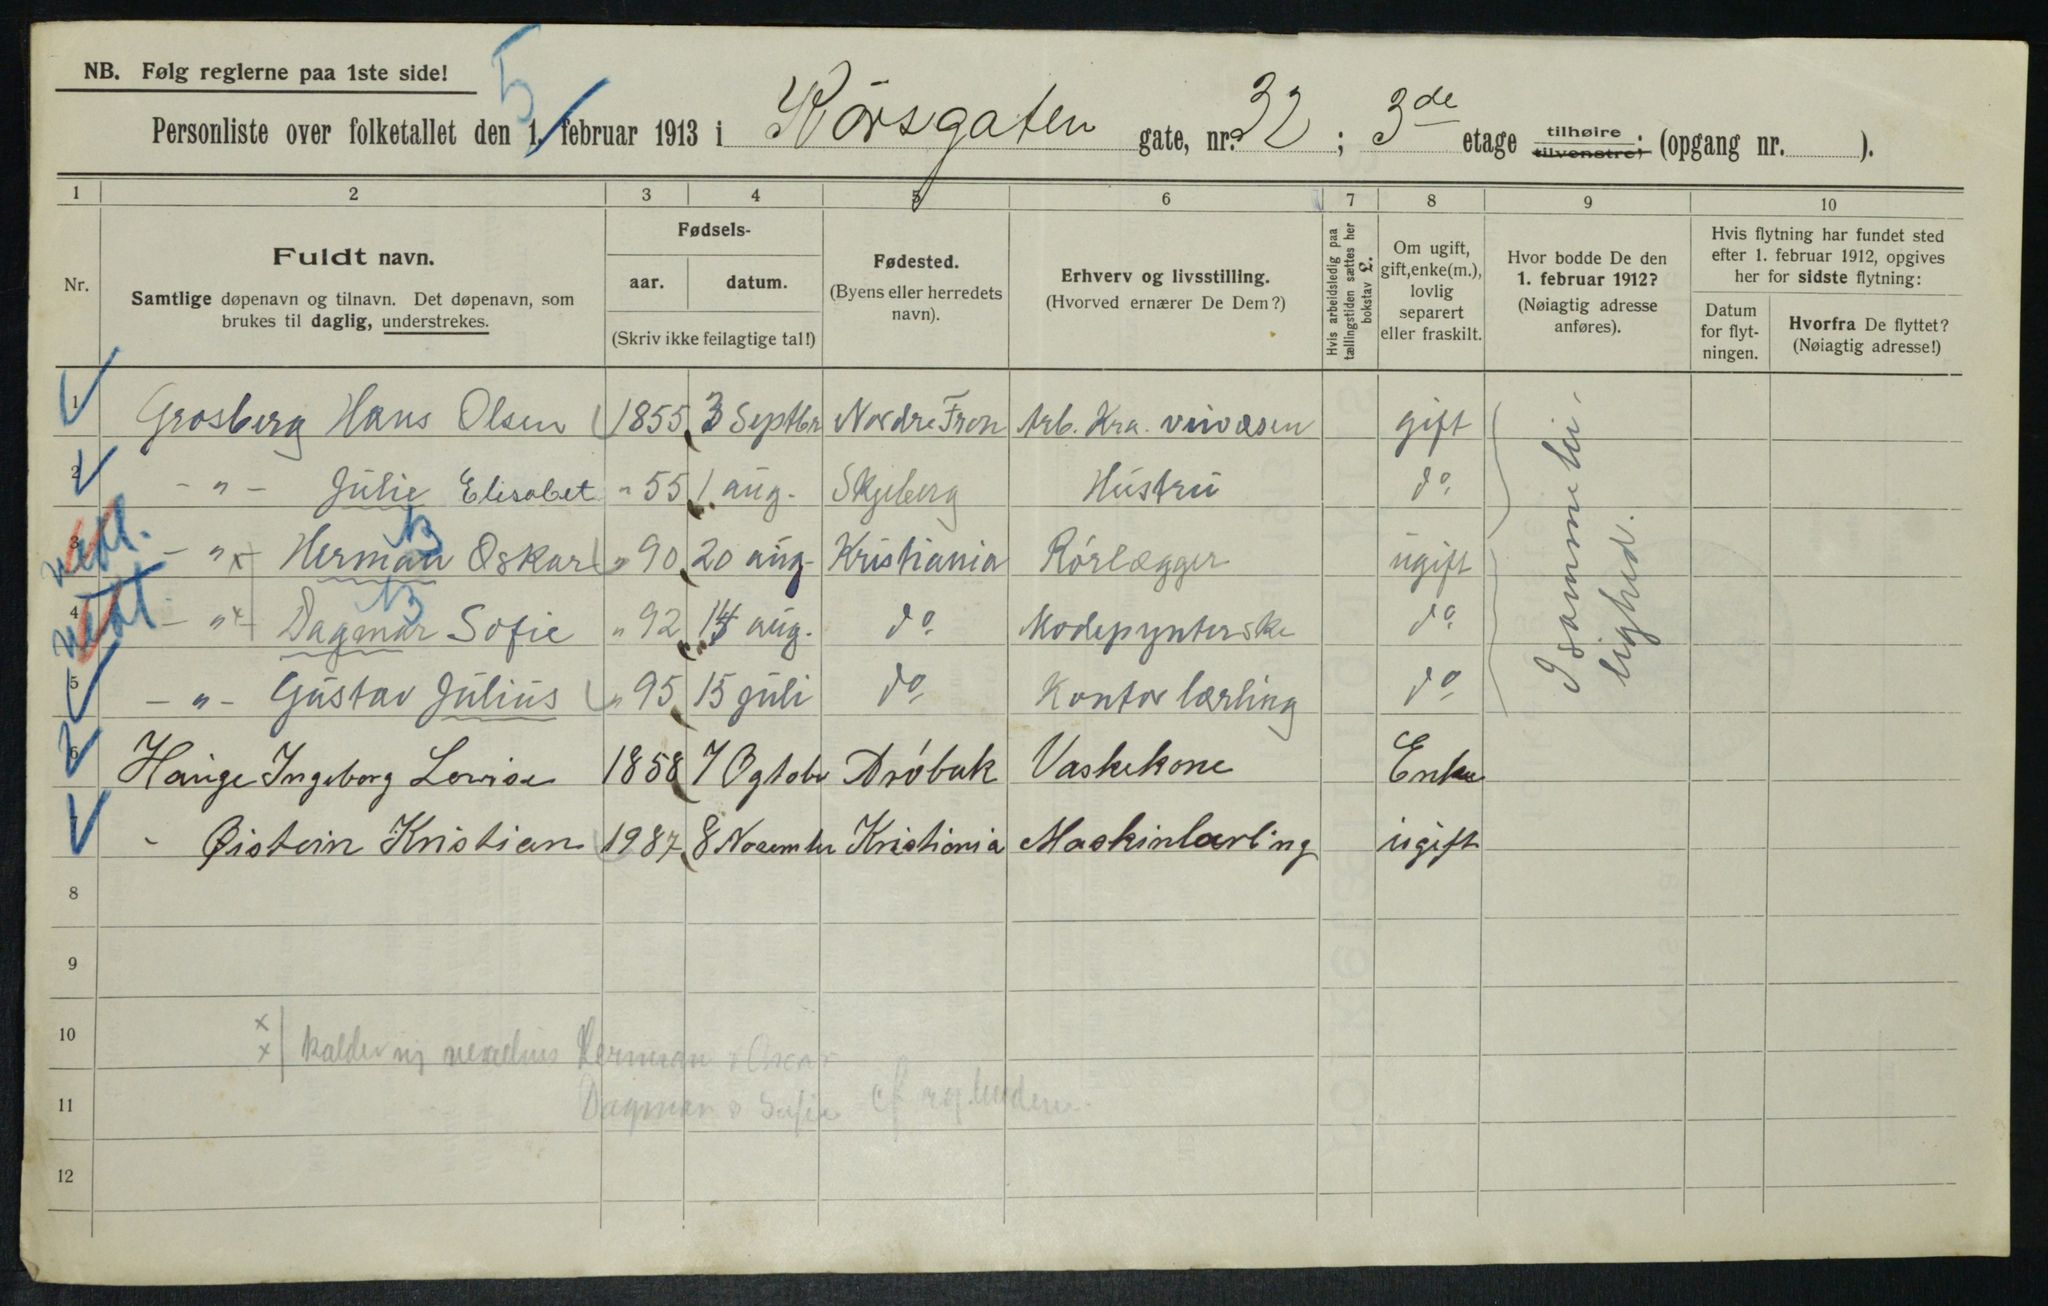 NB. Følg reglerne paa 1ste side!
5
Personliste over folketallet den 1. februar 1913 i Korsgaten gate, nr. 32 ; 3de etage tilhøire tilvenstre; (opgang nr. ).
1 2 3 4 5 6 7 8 9 10
Nr.
Fuldt navn.
Samtlige døpenavn og tilnavn. Det døpenavn, som
brukes til daglig, understrekes.
Fødsels-
aar. datum.
(Skriv ikke feilagtige tal!)
Fødested.
(Byens eller herredets
navn).
Erhverv og livsstilling.
(Hvorved ernærer De Dem?)
Hvis arbeidsledig paa
tællingstiden sættes her
bokstav L.
Om ugift,
gift, enke(m.),
lovlig
separert
eller fraskilt.
Hvor bodde De den
1. februar 1912?
(Nøiagtig adresse
anføres).
Hvis flytning har fundet sted
efter 1. februar 1912, opgives
her for sidste flytning:
Datum
for flyt-
ningen.
Hvorfra De flyttet?
(Nøiagtig adresse!)
1 Grosberg Hans Olsen 1855 3 Septbr Nordre Fron Arb. Kra. vinvæsen gift
2 - " - Julie Elisabet " 55 1 aug. Skjeberg Hustru do.
3 - " x Herman Oskar " 90 20 aug. Kristiania Rörlægger ugift
4 - " x Dagmar Sofie " 92 14 aug. do. Modepynterske do.
5 - " - Gustav Julius " 95 15 juli do. Kontorlærling do.
I samme lei-
lighed.
6 Hauge Ingeborg Lovise 1858 7 Ogtobr Dröbak Vaskekone Enke
7 " Øistein Kristian 1987 8 November Kristiania Maskinlærling ugift
8
9
10
x
x kalder sig Herman & Oscar
11
Dagmar & Sofie
12